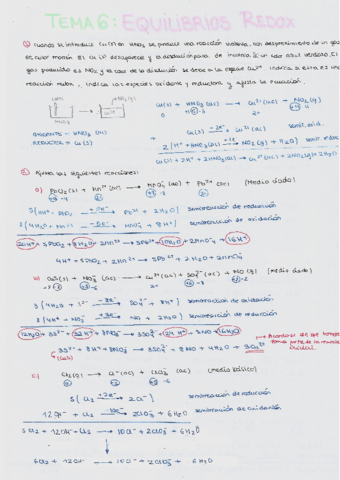 TEMA 6: EQUILIBRIOS REDOX
① Cuando se introduce Cu(s) en HNO₃ se produce una reacción violenta, con desprendimiento de un gas
de color marrón. El Cu(s) desaparece y la disolución pasa de incolora a un color azul verdoso. El
gas producido es NO₂ y el color de la disolución se debe a la especie Cu²⁺. Indica si esta es una
reacción redox, indica las especies oxidante y reductora y ajusta la ecuación.
Cu(s) + HNO₃(ac) → Cu²⁺(ac) + NO₂(g)
OXIDANTE = HNO₃(ac)
REDUCTOR = Cu(s)
Cu(s) -2e⁻→ Cu²⁺(ac) semir. oxid.
2(H⁺ + HNO₃(ac) +1e⁻→ NO₂(g) + H₂O) semir. reduc.
Cu(s) + 2H⁺ + 2HNO₃(ac) → Cu²⁺(ac) + 2NO₂(g) + 2H₂O
② Ajusta las siguientes reacciones:
a) PbO₂(s) + Mn²⁺(ac) → MnO₄⁻(ac) + Pb²⁺(ac) (Medio ácido)
5(4H⁺ + PbO₂ +2e⁻→ Pb²⁺ + 2H₂O) semirreacción de reducción
2(4H₂O + Mn²⁺ -5e⁻→ MnO₄⁻ + 8H⁺) semirreacción de oxidación
20H⁺ + 5PbO₂ + 8H₂O + 2Mn²⁺ → 5Pb²⁺ + 10H₂O + 2MnO₄⁻ + 16H⁺
4H⁺ + 5PbO₂ + 2Mn²⁺ → 5Pb²⁺ + 2H₂O + 2MnO₄⁻
b) CuS(s) + NO₃⁻(ac) → Cu²⁺(ac) + SO₄²⁻(ac) + NO(g) (medio ácido)
semirreacción de oxidación
semirreacción de reducción
3S²⁻ + 8H⁺ + 8NO₃⁻ → 3SO₄²⁻ + 8NO + 4H₂O + 3Cu²⁺
(CuS)
c) Cl₂(g) → Cl⁻(ac) + ClO₃⁻(ac) (medio básico)
5(Cl₂ +2e⁻→ 2Cl⁻) semirreacción de reducción
12OH⁻ + Cl₂ -10e⁻→ 2ClO₃⁻ + 6H₂O semirreacción de oxidación
5Cl₂ + 12OH⁻ + Cl₂ → 10Cl⁻ + 2ClO₃⁻ + 6H₂O
6Cl₂ + 12OH⁻ → 10Cl⁻ + 2ClO₃⁻ + 6H₂O